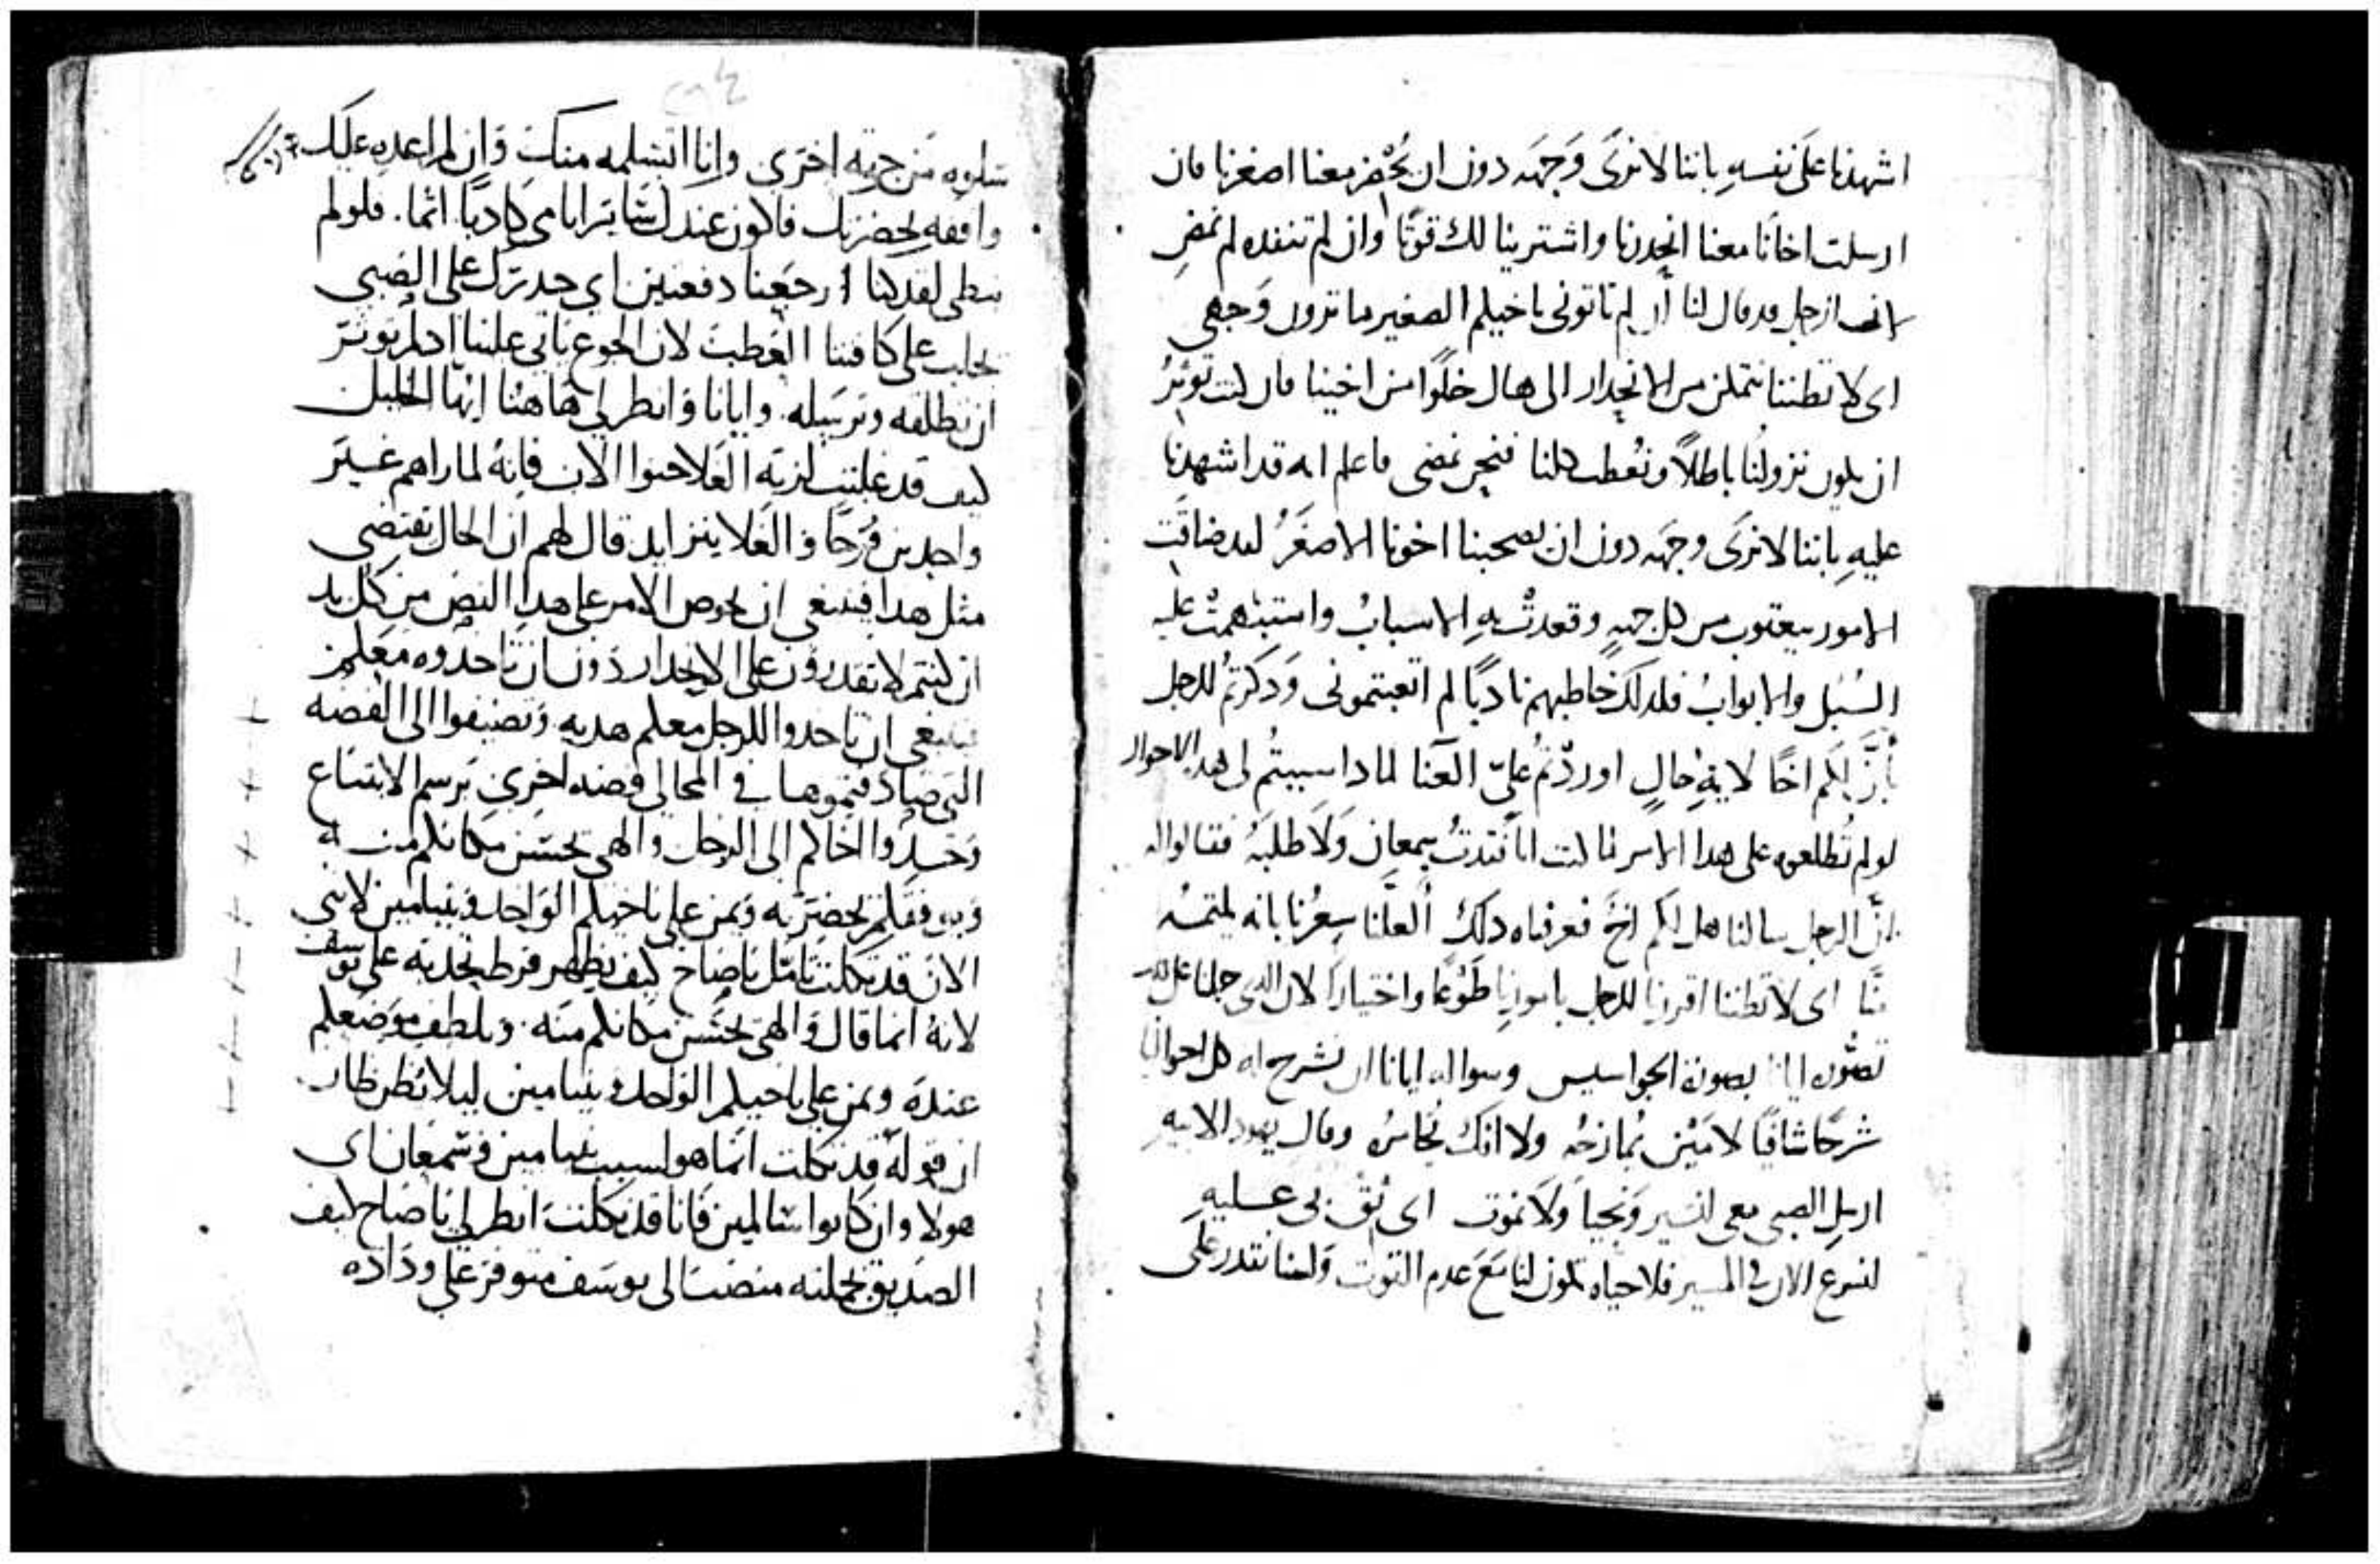 اشهدنا على نفسهِ باننا لا نرى وَجهَه دون ان يُحضر معنا اصغرنا فان
ارسلت اخانا معنا انحدرنا واشترينا لك قوتًا وان لم تنفده لم نمضِ
لانه الرجل قد قال لنا ان لم تاتونى باخيكم الصغير ما ترون وَجهى
اى لا تظننا نتمكن من الانحدار الى هناك خلوًا من اخينا فان كنت توثرُ
ان يكون نزولنا باطلًا ونُعطب كلنا فنحن نمضى فاعلم انه قد اشهدنا
عليهِ باننا لا نرَى وجهَه دون ان يصحبنا اخونا الاصغَرُ لقد ضاقَت
الامور بيعقوب من كل جهةٍ وقعدتْ بهِ الاسبابُ واستبْهمتْ عليه
السُبُل والابوابُ فلدلكَ خاطبهم نادبًا لم اتعبتمونى وَدكرتمُ للرجل
بانَّ لكم اخًا لايةِ حالٍ اوردْتمُ علىّ العنا لمادا سببتُم لى هده الاحوال
لولم تُطلعوه على هدا الامر لما كنت انا فقدتُ سمعان وَلاَ طلبَهُ فقالوا له
انَّ الرجل سالنا هل لكم اخٌ فعرفناه دلكَ ألعلَّنا شعُرنا بانه يلتمسُه
منَّا اى لا تظننا اقررنا للرجل بامورنا طَوْعًا واختيارًا لان الدى حملنا على
تصوّره ايانا بصورة الجواسيس وسواله ايانا ان نشرح له كل احوالنا
شرحًا شافيًا لا مَيْن يُمازجُه ولا افك يُخامرُه وقال يهودا لابيه
ارسل الصبى معى لنسير وَنحيا وَلاَ نموت اى ثقْ بى عليهِ
لنسرع الان فى المسير فلا حياه تكون لنا مَعَ عدم القوت وَلسنا نقدر على
سلوه من جهة اخرَى وانا اتسلمه منكَ وَان لم اعدهِ عليك
واقفهِ بحضرتك فاكون عندك سَاير ايامى كادبًا اثما. فلو لم
نبطى لقد كنا ارجعنا دفعتين اى حدرك على الصبى
يجلب على كافتنا العَطب لان الجوع ياتى علينا ادا لم توثرَ
ان تطلقه وترسَله. وايانا وَانظر لى هَاهنا ايهَا الخليل
كيف قد غلبت لزبة الغَلا حنوا الاب فانهُ لما راهم غير
واجدين فرَحًا والغَلا يتزايد قال لهم ان الحال تقتضى
مثل هدا فينبغى ان يخوض الامر على هدا النص من كل بد
ان كنتم لا تقدرون على الانحدار دون ان تاخدوه معكم
فينبغى ان تاخدوا للرجل معكم هديه وَتضيفوا الى الفضه
التى صادفتموها فى المحالى فضه اخرى برسم الابتياع
وخدوا اخاكم الى الرجل والهى يحسّن مكانكم منه
ويوفقكم بحضرَته وَيمن على باخيكم الوَاحد وَبنيامين لاننى
الان قد تكلت تامّل يا صاح كيف يظهر فرط تحدبه على يوسف
لانهُ انما قال وَالهى يحسّن مكانكم منه. ويلطف موضعكم
عندهَ ويمن على باخيكم الوَاحد وبنيامين ليلا تظن ظان
ان قوله قد تكلت انما هو لسبب بنيامين وشمعَان اى
هولا وان كانوا سالمين فانا قد تكلت انظر لى يا صاح كيف
الصدّيق بجملته منصَب الى يوسَف متوفر على ودَاده